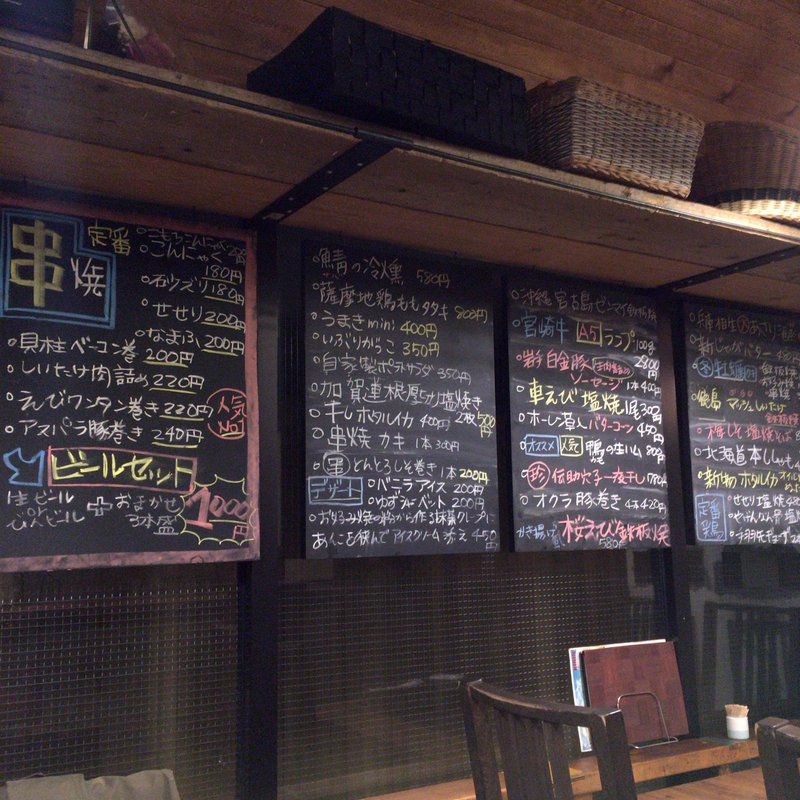 串焼
定番
こもちこんにゃく
こんにゃく 180円
石ヅリ 180円
せせり 200円
なまふ 200円
貝柱ベーコン巻 200円
しいたけ肉詰め 220円
えびワンタン巻き 220円
人気No1
アスパラ豚巻き 240円
ビールセット
生ビール
or
びんビール
+
おまかせ
3本盛
1000円
鯖の冷燻 580円
薩摩地鶏ももタタキ 800円
うまきmini 400円
いぶりがっこ 350円
自家製ポテトサラダ 350円
加賀蓮根厚切り塩焼き 2枚500円
干しホタルイカ 400円
串焼 カキ 1本300円
とんとろしそ巻き 1本200円
デザート
バニラアイス 200円
ゆずシャーベット 200円
お好み焼の粉から作る抹茶クレープに
あんこを挟んでアイスクリーム添え 450円
沖縄 宮古島ゼンマイ
宮崎牛 A5 ランプ 100g 2800円
岩手 白金豚 ソーセージ 1本400円
車えび 塩焼 1尾 300円
バターコーン 450円
オススメ 人気 鴨の生ハム 580円
珍 伝助穴子一夜干し 780円
オクラ豚巻き
かき揚げ風 桜えび鉄板焼 580円
新じゃがバター
北海道 本ししゃも
新物ホタルイカ
定番
鶏
せせり塩焼
やげんなん骨塩